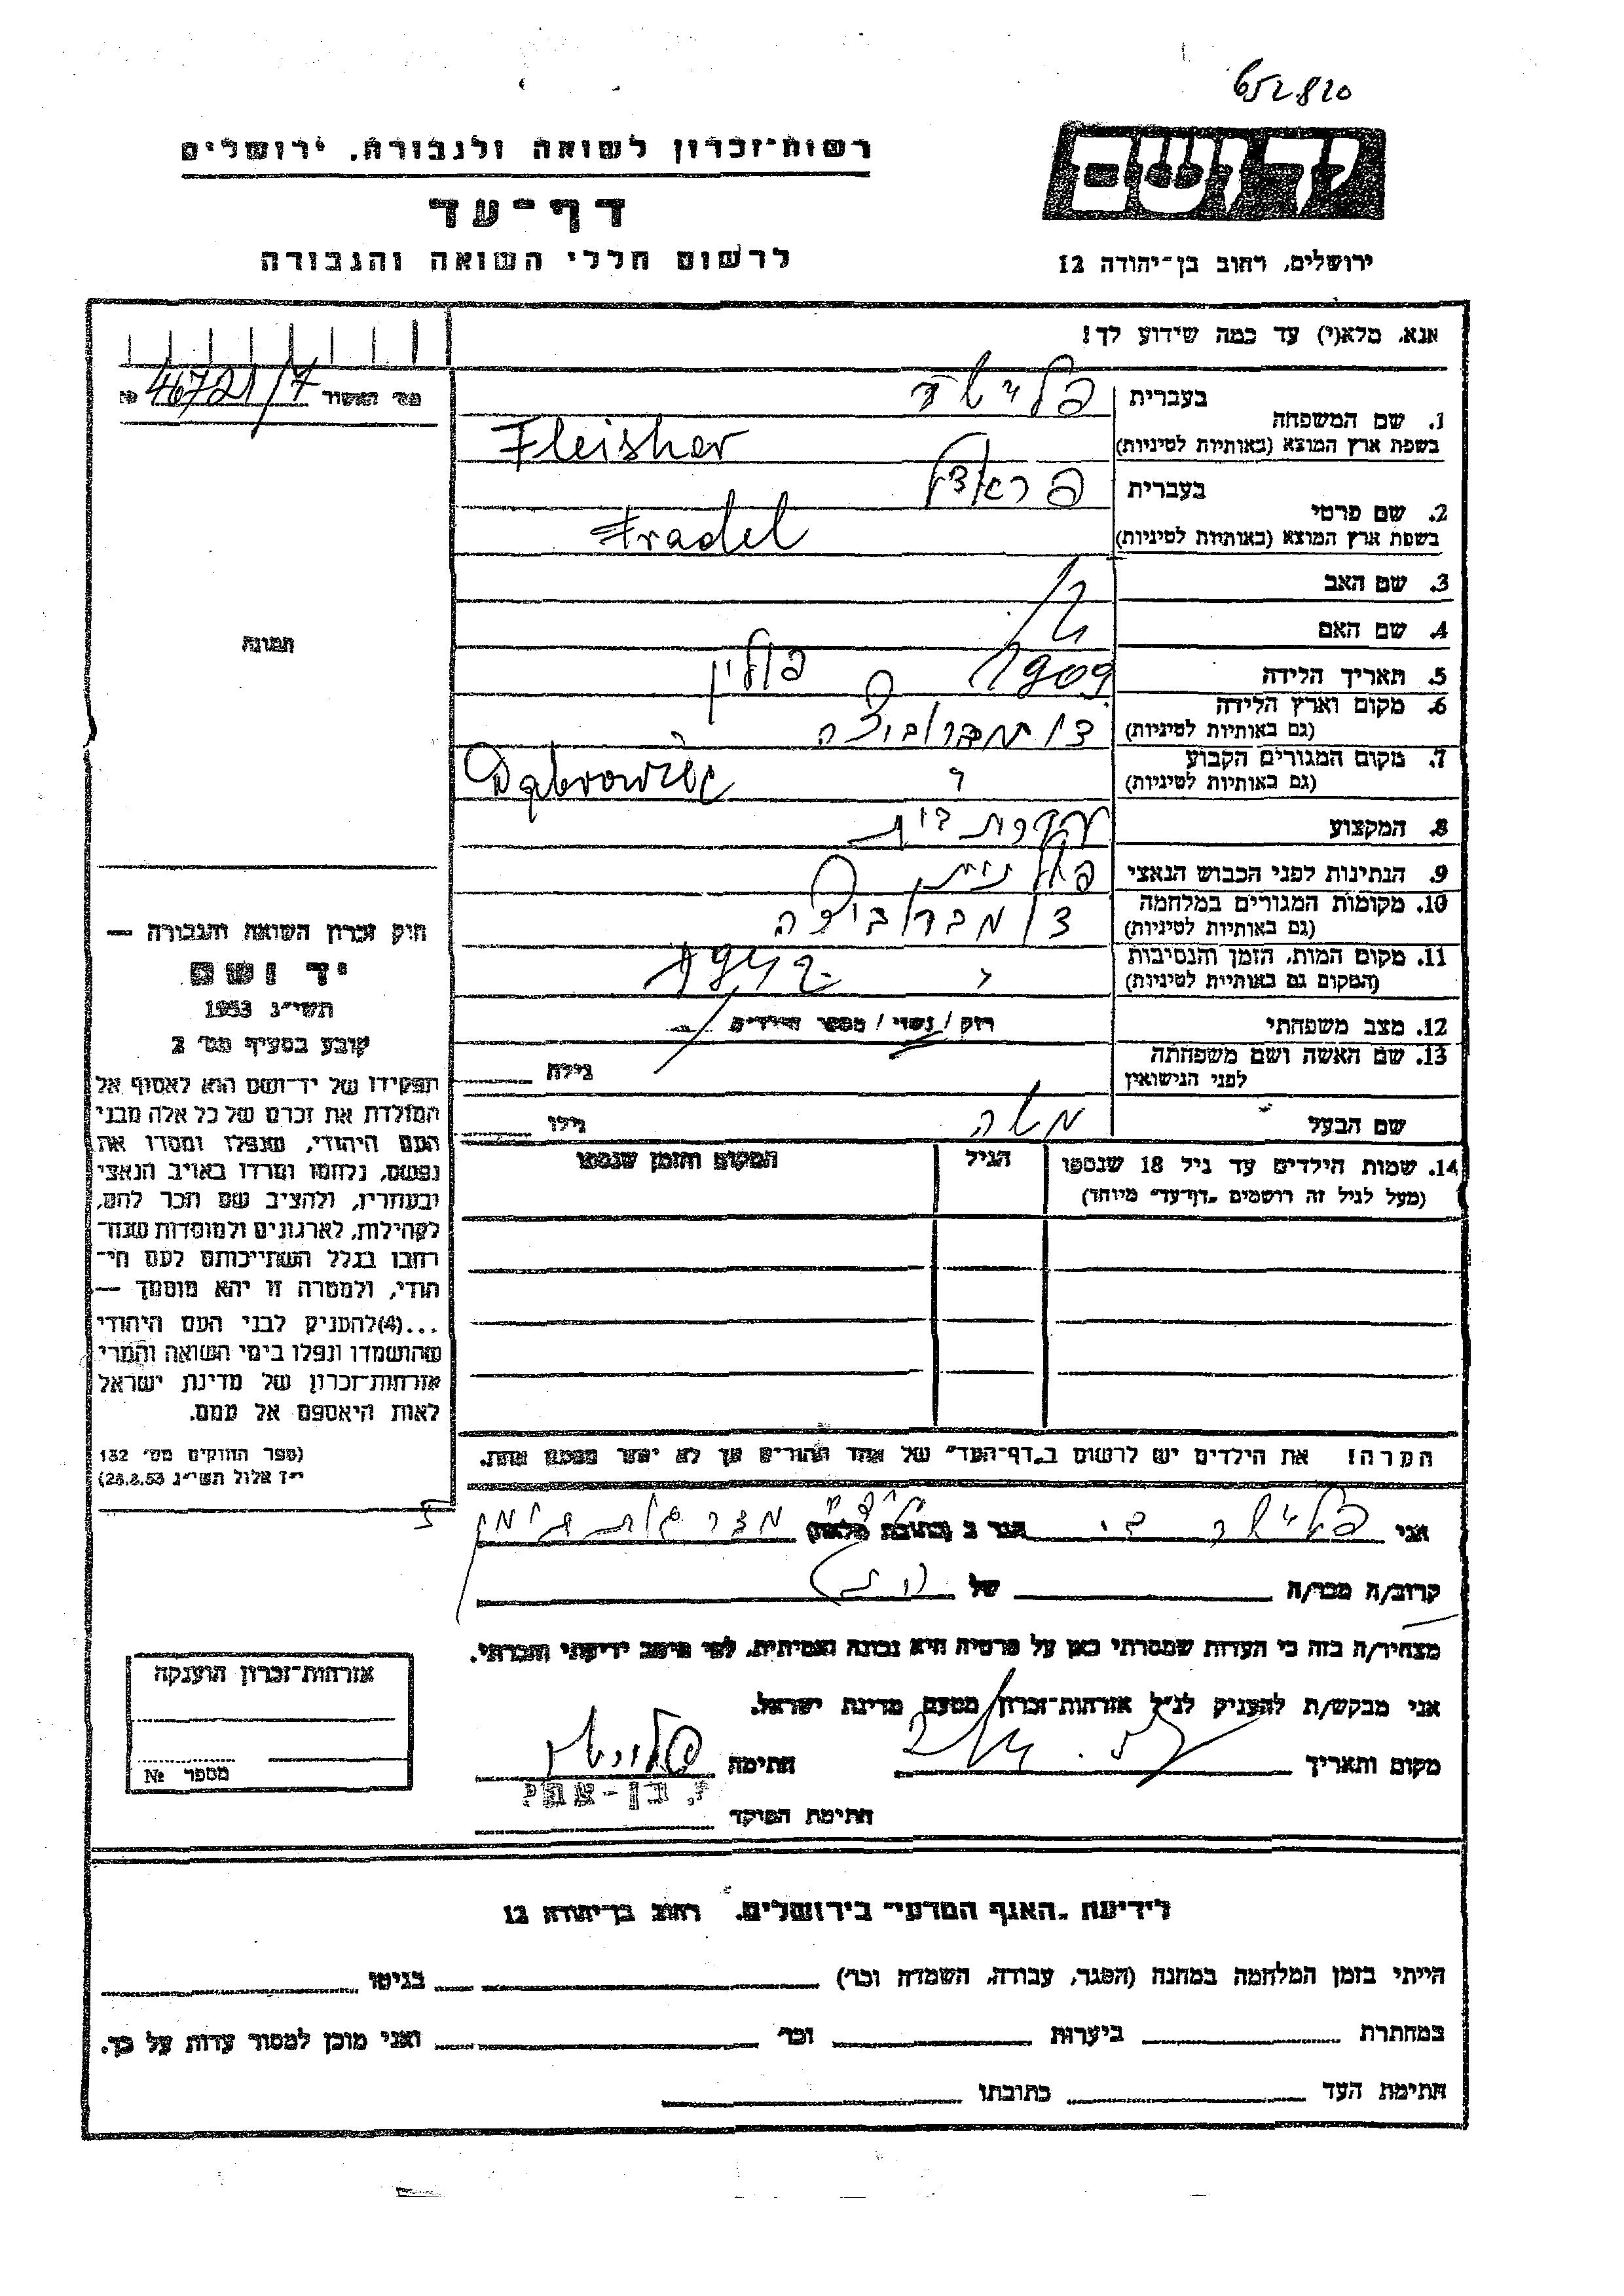 652820
רשות־זכרון לשואה ולגבורה, ירושלים
דף־עד
לרשום חללי השואה והגבורה
יד ושם
ירושלים, רחוב בן־יהודה 12
אנא, מלא(י) עד כמה שידוע לך!
מס' האשור № 46721/7
1. שם המשפחה
בעברית פלישר
בשפת ארץ המוצא (באותיות לטיניות) Fleisher
2. שם פרטי
בעברית פראדל
בשפת ארץ המוצא (באותיות לטיניות) Fradel
3. שם האב
4. שם האם
5. תאריך הלידה 1909
6. מקום וארץ הלידה פולין
(גם באותיות לטיניות) דומברוביצה
7. מקום המגורים הקבוע
(גם באותיות לטיניות) " Dąbrowica
8. המקצוע עקרת בית
9. הנתינות לפני הכבוש הנאצי פולנית
10. מקומות המגורים במלחמה
(גם באותיות לטיניות) דומברוביצה
11. מקום המות, הזמן והנסיבות
(המקום גם באותיות לטיניות) " 1942
12. מצב משפחתי רוק / נשוי / מספר הילדים
13. שם האשה ושם משפחתה
לפני הנישואין גילה
שם הבעל משה גילו
14. שמות הילדים עד גיל 18 שנספו הגיל המקום והזמן שנספו
(מעל לגיל זה רושמים "דף־עד" מיוחד)
תמונה
חוק זכרון השואה והגבורה —
יד ושם
תשי"ג 1953
קובע בסעיף מס' 2
תפקידו של יד־ושם הוא לאסוף אל
המולדת את זכרם של כל אלה מבני
העם היהודי, שנפלו ומסרו את
נפשם, נלחמו ומרדו באויב הנאצי
ובעוזריו, ולהציב שם וזכר להם,
לקהילות, לארגונים ולמוסדות שנח־
רבו בגלל השתייכותם לעם הי־
הודי, ולמטרה זו יהא מוסמך —
...(4)להעניק לבני העם היהודי
שהושמדו ונפלו בימי השואה והמרי
אזרחות־זכרון של מדינת ישראל
לאות היאספם אל עמם.
(ספר החוקים מס' 132
י"ז אלול תשי"ג 28.8.53)
הערה! את הילדים יש לרשום ב"דף־העד" של אחד ההורים אך לא יותר מפעם אחת.
אני פלישר הגר ב (כתובת מלאה)
קרוב/ה מכר/ה של
מצהיר/ה בזה כי העדות שמסרתי כאן על פרטיה היא נכונה ואמיתית, לפי מיטב ידיעתי והכרתי.
אני מבקש/ת להעניק לנ"ל אזרחות־זכרון מטעם מדינת ישראל.
מקום ותאריך חתימה
חתימת הפוקד י. בן־עמי
אזרחות־זכרון הוענקה
מספר №
לידיעת "האגף המדעי" בירושלים, רחוב בן־יהודה 12
הייתי בזמן המלחמה במחנה (הסגר, עבודה, השמדה וכו') בגיטו
במחתרת ביערות וכו' ואני מוכן למסור עדות על כך.
חתימת העד כתובתו